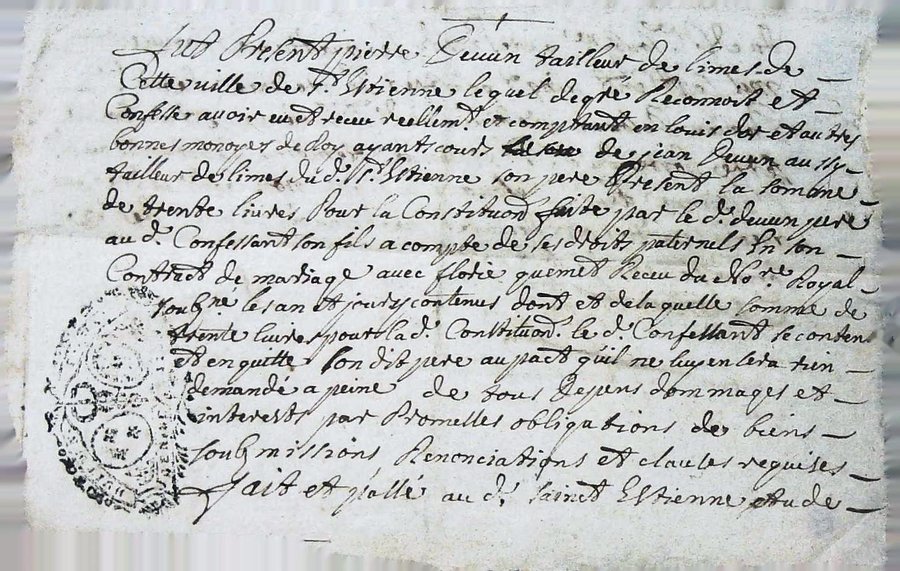 fut Present pierre Devun tailleur de limes de
Cette ville de St Estienne lequel de gré Reconnoit et
Confesse avoir eu et receu reellemt et comptant en louis dor et autres
bonnes monoyes de loy ayant cours de jean Devun aussy
tailleur de limes du dt St Estienne son pere Present la somme
de trente livres Pour la Constituon faite par le dt devun pere
au dt Confessant son fils a compte de ses droits paternels En son
Contract de mariage avec florie quemet Receu du Nore Royal
soubne les an et jour y contenus dont et de laquelle somme de
trente livres pour la de Constituon le dt Confessant se content
et en quitte son dit pere au pact quil ne luy en sera rien
demandé a peine de tous Depens dommages et
interests par Promesses obligations de biens
soubmissions Renonciations et clauses requises
fait et passé au dt sainct Estienne etude